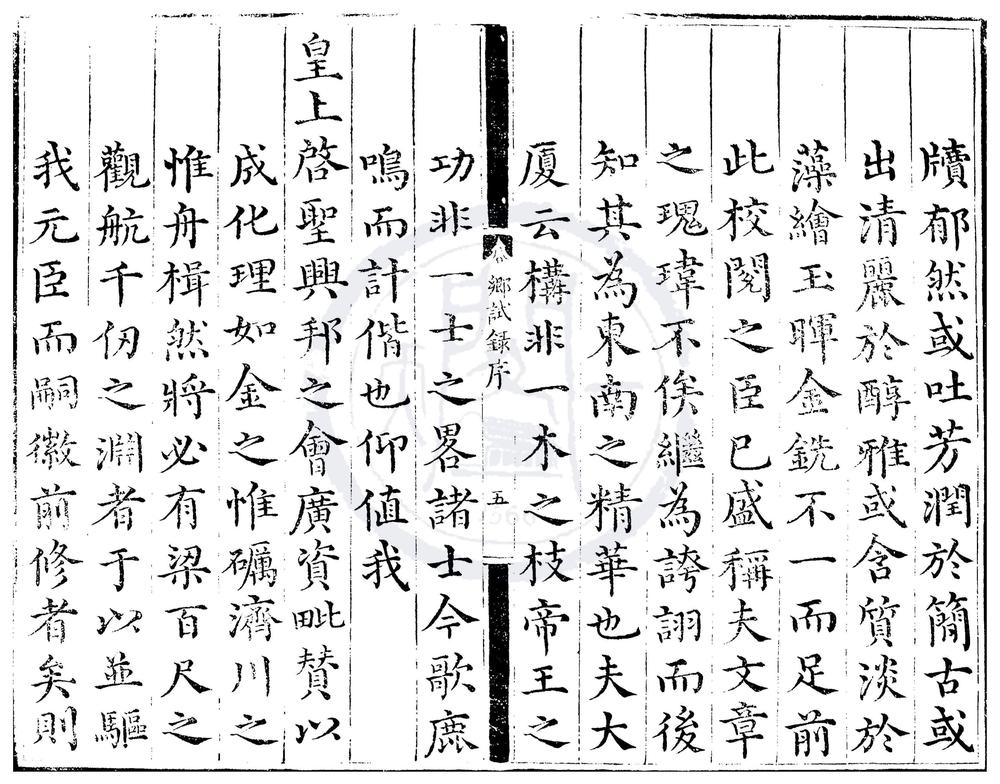 牘郁然或吐芳潤於簡古或
出清麗於醇雅或含質淡於
藻繪玉暉金銑不一而足前
此校閱之臣已盛稱夫文章
之瑰瑋不俟繼為誇詡而後
知其為東南之精華也夫大
厦云構非一木之枝帝王之
鄉試錄序
五
功非一士之畧諸士今歌鹿
鳴而計偕也仰值我
皇上啓聖興邦之會廣資毗賛以
成化理如金之惟礪濟川之
惟舟楫然將必有梁百尺之
觀航千仞之淵者于以並驅
我元臣而嗣徽前修者矣則